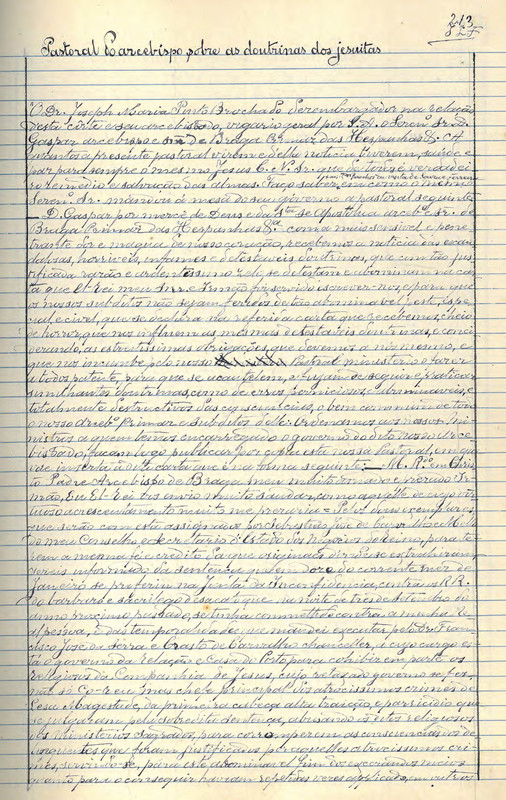 213
Pastoral Earcebispo, sobre as doutrinas dos jesuitas
O Dr. Joseph Maria Pinto Brochado Desembargador na relação
desta côrte e seu arcebispado, vigario geral por S. A. o Seren.º Sr. D.
Gaspar arcebispo e sr. de Braga Primaz das Hespanhas &. A
quantos a presente pastoral virem e della noticia tiverem, saude e
paz para sempre o mesmo Jesus C. N. Sr. que de todos é verdadei
ro remedio e salvação das almas. Faço saber, em como o mesmo
Seren. Sr. mandou á mesa do seu governo a pastoral seguinte
— D. Gaspar por mercê de Deus e da S.ta Sé Apostolica arceb.º sr. de
Braga Primaz das Hespanhas &.a com a mais sensivel e pene
trante dôr e magoa de nosso coração, recebemos a noticia das escan
dalosas, horriveis, infames e detestaveis doutrinas, que com tão jus
tificada razão e ardentissimo zelo, se detestam e abominam na car
ta que El-Rei meu Snr. e Irmão foi servido escrever-nos, e para que
os nossos subditos não sejam feridos de tão abominavel peste,
e cruel, que se declara na referida carta que recebemos, cheio
de horror, que nos influem as mesmas detestaveis doutrinas, e consi
derando, as estreitissimas obrigações que devemos a nós mesmo, e
que nos incumbe pelo nosso Pastoral ministerio e fazer
a todos patente, para que se acautelem, e fujam de seguir e praticar
similhantes doutrinas como de erros perniciosos, abominaveis, e
totalmente destructivos das consciencias, e bem commum de todo
o nosso arceb.º Primaz e subditos delle: Ordenamos aos nossos Mi
nistros a quem temos encarregado o governo do dito nosso arce
bispado, façam logo publicar por copia esta nossa Pastoral, em que
vae inserta a dita carta que é na forma seguinte: — M. R.do em Chris
to Padre Arcebispo de Braga, meu muito amado e prezado Ir
mão, Eu El-Rei vos envio muito saudar, como aquelle de cujo vir
tuoso accrescentamento muito me prazeria = Pelos dous exemplares
que serão com esta assignados por Sebastião José de Carvalho e Mello
do meu Conselho e Secretario d'Estado dos Negocios do Reino, para te
rem a mesma fé e credito que os originaes d'onde se extrahiram
sereis informado, da sentença que em doze do corrente mez de
Janeiro se proferiu na Junta da Inconfidencia, contra os R.R.
do barbaro e sacrilego desacato que na noite de tres de setembro do
anno proximo passado, se tinha commettido contra a minha Re
al pessoa, e das temporalidades que mandei executar, pelo Dr. Fran
cisco José da Serra e Crasto de Carvalho chanceller, a cujo cargo es
tá o governo da relação e Casa do Porto para cohibirem parte os
Religiosos da Companhia de Jesus, cujo relaxado governo se fez,
não só Co-reu, mas chefe principal dos atrocissimos crimes de
Lesa Magestade, da primeira cabeça, alta traição, e parricidio que
se julgaram pela sobredita sentença, abusando os ditos religiosos
dos ministerios sagrados, para corromperem as consciencias dos
que foram justificados por aquelles atrocissimos cri
mes, servindo-se, para este abominavel fim dos execrandos meios
para o conseguir haviam repetidas vezes applicado, em outros